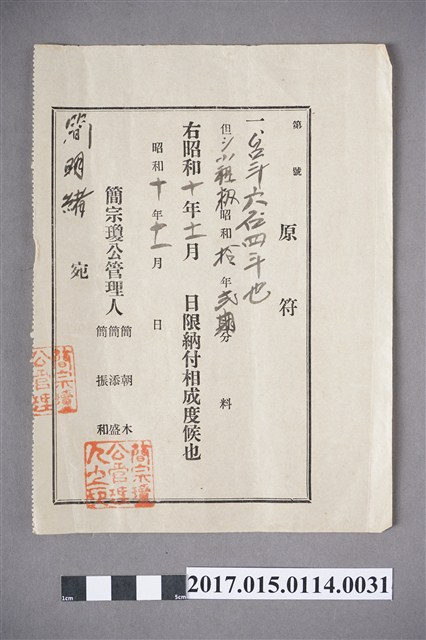 第　號
原符
一、台斗六石四斗也
但シ小租穀昭和拾年弍期分　料
右昭和十年十一月　日限納付相成度候也
昭和十年十一月　日
簡宗瓊公管理人
簡朝木
簡添盛
簡振和
簡明緒　宛
簡宗瓊
公管理
簡宗瓊
公管理
人之印
1cm
5cm
2017.015.0114.0031